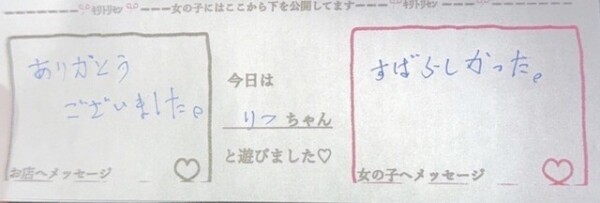 キリトリセン ---女の子にはここから下を公開してます--- キリトリセン
ありがとう
ございました。
お店へメッセージ
今日は
りつちゃん
と遊びました♡
すばらしかった。
女の子へメッセージ